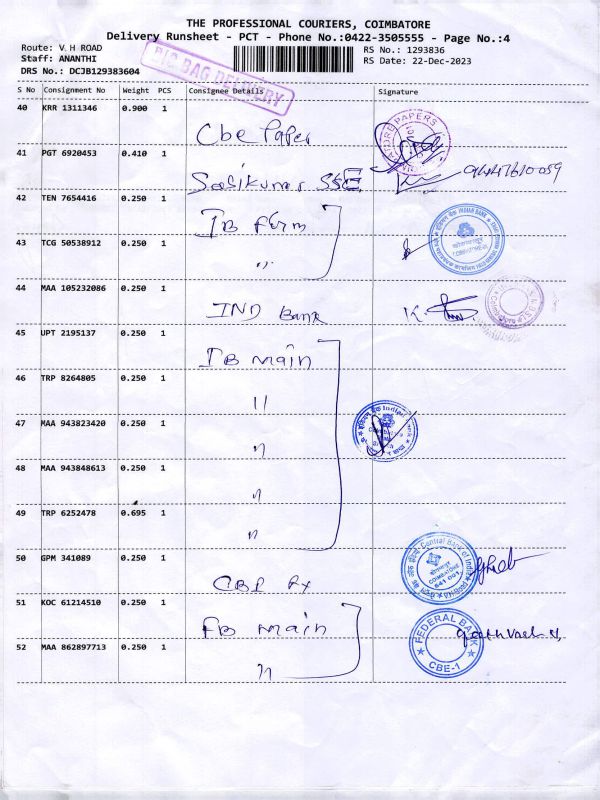 THE PROFESSIONAL COURIERS, COIMBATORE
Delivery Runsheet - PCT - Phone No.:0422-3505555 - Page No.:4
Route: V H ROAD
Staff: ANANTHI
DRS No.: DCJB129383604
BIG BAG DELIVERY
RS No.: 1293836
RS Date: 22-Dec-2023
S No Consignment No Weight PCS Consignee Details Signature
40 KRR 1311346 0.900 1
Cbe Paper
41 PGT 6920453 0.410 1
Sasikumar
42 TEN 7654416 0.250 1
IB
43 TCG 50538912 0.250 1
"
INDIAN BANK
44 MAA 105232086 0.250 1
IND Bank
45 UPT 2195137 0.250 1
IB main
46 TRP 8264805 0.250 1
11
47 MAA 943823420 0.250 1
"
48 MAA 943848613 0.250 1
"
49 TRP 6252478 0.695 1
"
50 GPM 341089 0.250 1
Central Bank of India
COIMBATORE
641 001
51 KOC 61214510 0.250 1
FB main
FEDERAL BANK
CBE-1
52 MAA 862897713 0.250 1
"